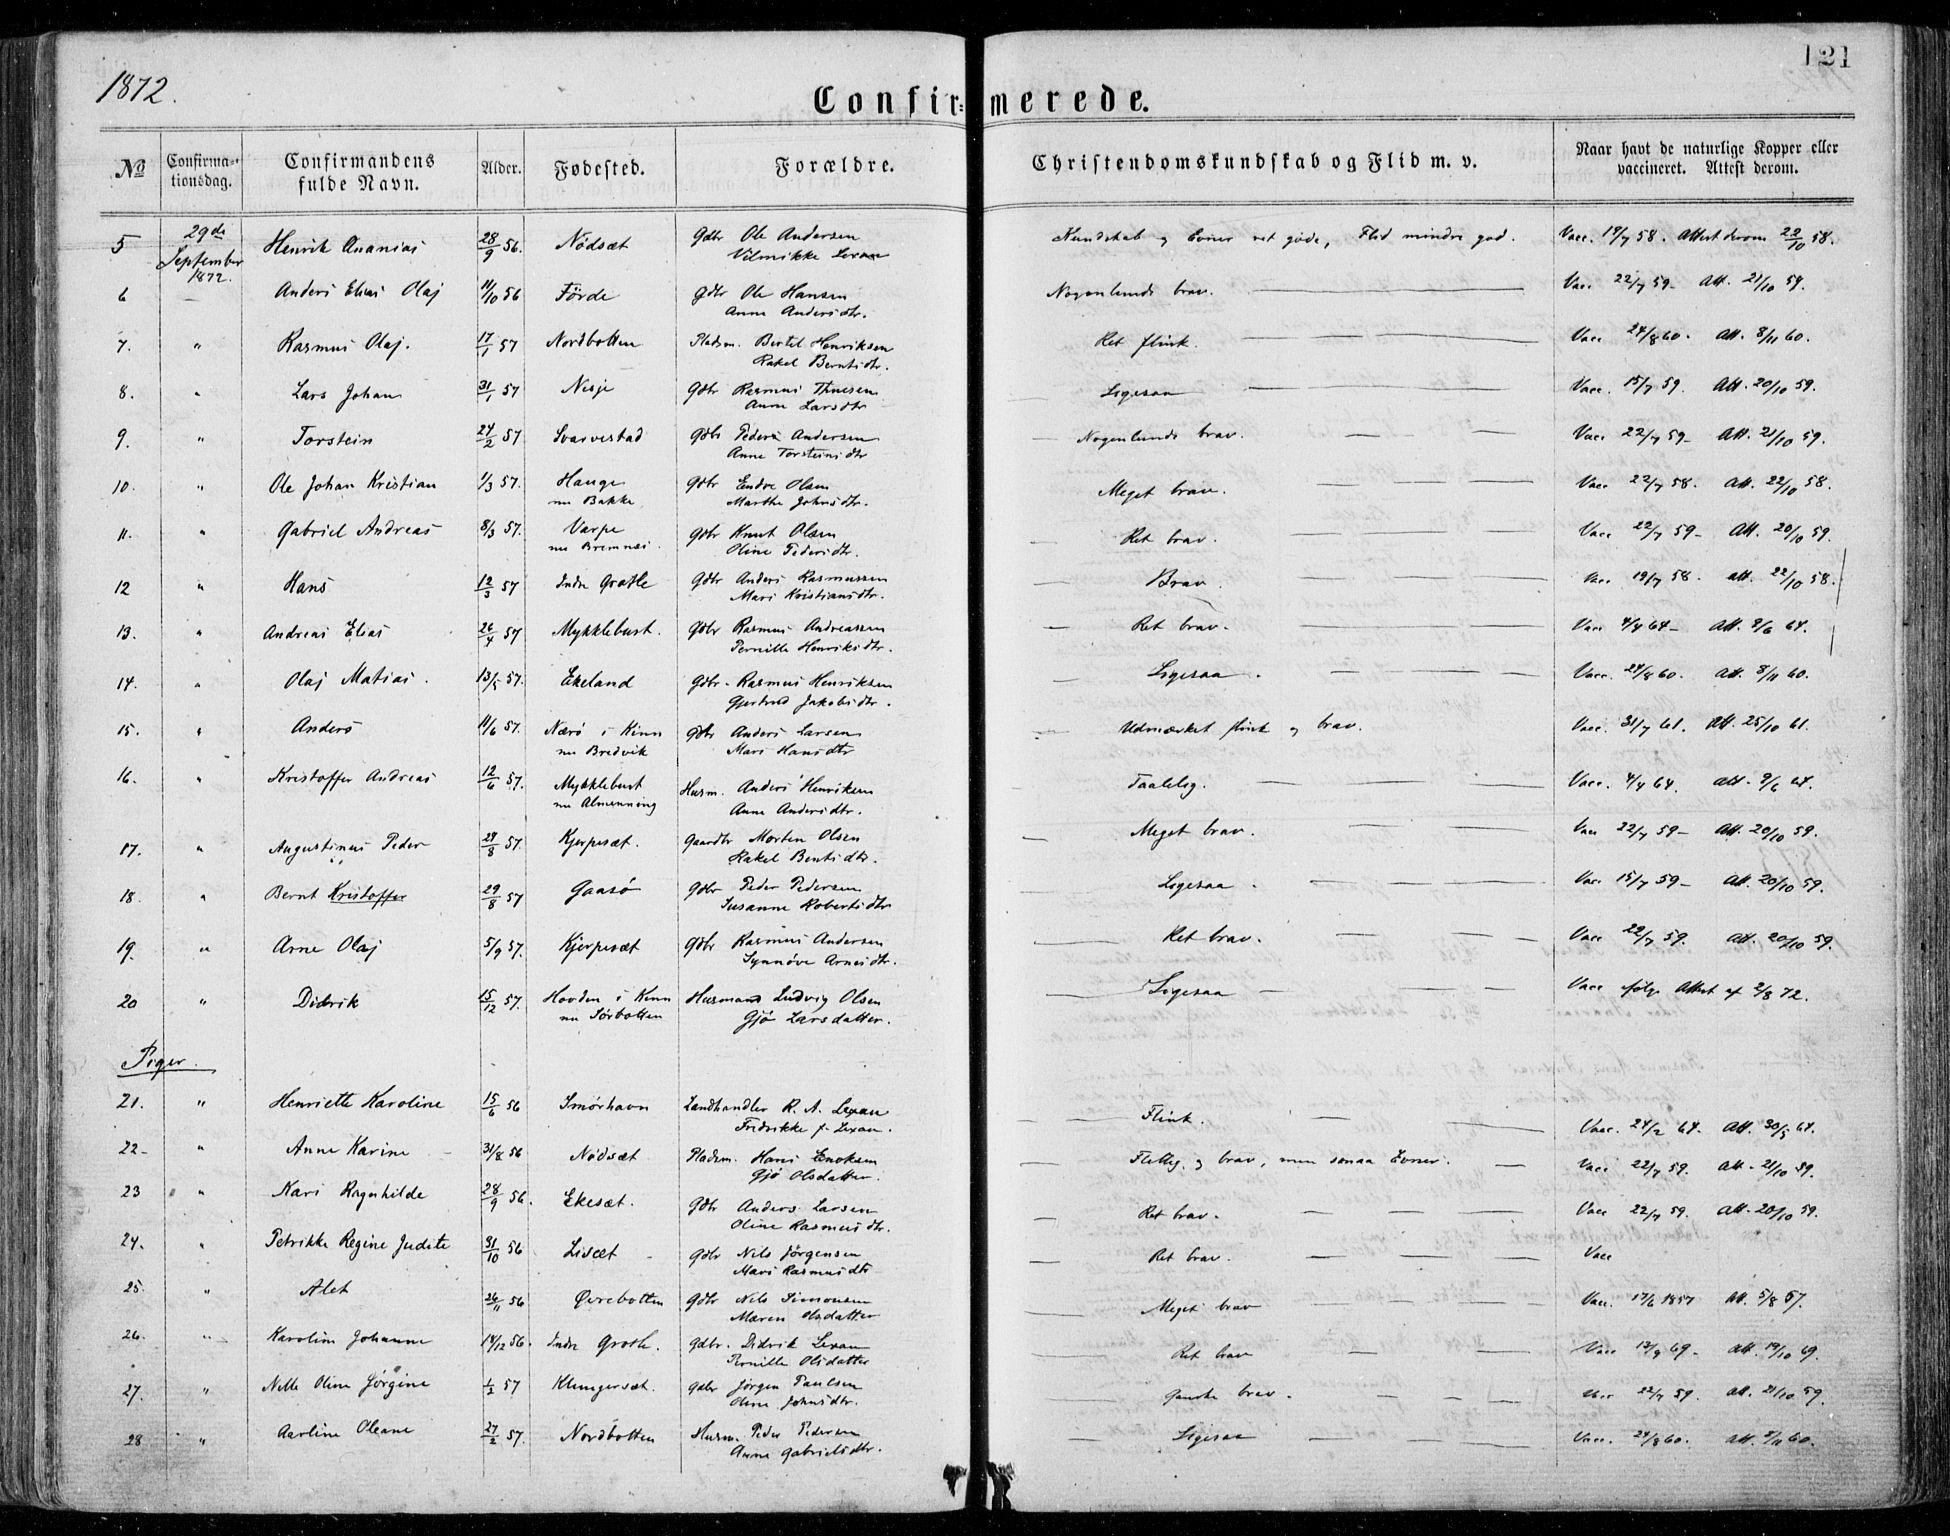 1872.
121
Confir=merede.
No
Confirma=tionsdag.
Confirmandens fulde Navn.
Alder.
Fødested.
Forældre.
Christendomskundskab og Flid m. v.
Naar havt de naturlige Kopper eller vaccineret. Attest derom.
5 29de September 1872. Henrik Ananias 28/9 56. Nødsæt Gdbr Ole Andersen Vilmikke Lexau Kundskab og Evner ret gode, Flid mindre god. Vacc. 19/7 58. Attest derom 22/10 58.
6 — Anders Elias Olaj 11/10 56 Förde Gdbr Ole Hansen Anne Andersdtr. Nogenlunde brav. Vacc. 22/7 59 - Att. 21/10 59.
7. " Rasmus Olaj. 17/1 57 Nordbotten Pladsm. Bertel Henriksen Rakel Berntsdtr. Ret flink. Vacc 24/8 60. Att. 8/11 60.
8. " Lars Johan 31/1 57 Nesje Gdbr Rasmus Thuesen Anne Larsdtr Ligesaa Vacc. 15/7 59. Att. 20/10 59.
9. " Torstein 24/2 57 Svarvestad Gdbr Peder Andersen Anne Torsteinsdtr Nogenlunde brav. Vacc 22/7 59 - Att. 21/10 59.
10. " Ole Johan Kristian 1/3 57. Hauge nu Bakke Gdbr Endre Olsen Marthe Johnsdtr. Meget brav. Vacc 22/7 58. Att. 22/10 58.
11. " Gabriel Andreas 8/3 57. Varpe nu Bremnæs. Gdbr Knut Olsen Oline Pedersdtr. Ret brav. Vacc 22/7 59 - Att. 20/10 59.
12 " Hans 12/3 57 Indre Grotle Gdbr Anders Rasmussen Mari Kristiansdtr. Brav. Vacc 19/7 58. att. 22/10 58.
13. " Andreas Elias 26/4 57 Mykklebust. Gdbr Rasmus Andreassen Pernille Henriksdtr. Ret brav. Vacc 4/4 64 - Att. 9/6 64.
14. " Olaj Matias. 13/5 57. Ekeland Gdbr. Rasmus Henriksen Gjertrud Jakobsdtr. Ligesaa. Vacc. 24/8 60. Att. 8/11 60.
15. " Anders 11/6 57. Nærö i Kinn nu Bredvik Gdbr Anders Larsen Mari Hansdtr Udmærket flink og brav. Vacc. 31/7 61. Att. 25/10 61.
16. " Kristoffer Andreas 12/6 57. Mykklebust nu Almenning Husm. Anders Henriksen Anne Andersdtr. Taalelig. Vacc. 4/4 64. Att. 9/6 64.
17. " Augustinus Peder 24/8 57. Kjerpesæt. Gaardbr Morten Olsen Rakel Bentsdtr. Meget brav. Vacc 22/7 59 - Att. 20/10 59.
18. " Bernt Kristoffer 29/8 57 Gaasö Gdbr Peder Pedersen Susanne Robertsdtr Ligesaa. Vacc 15/7 59 - Att. 20/10 59.
19. " Arne Olaj 5/9 57. Kjerpesæt Gdbr Rasmus Andersen Synnöve Arnesdtr. Ret brav. Vacc 22/7 59. Att. 20/10 59.
20 " Didrik 15/12 57. Hovden i Kinn nu Sörbotten Husmand Ludvig Olsen Gjö Larsdatter. Ligesaa Vacc ifölge Attest af 2/8 72.
Piger.
21. " Henriette Karoline 15/6 56 Smörhavn Landhandler R. A. Lexau Fredrikke f. Lexau. Flink. Vacc. 24/2 64. Att. 30/5 64.
22 - " Anne Karine 31/8 56 Nødsæt Pladsm. Hans Enoksen Gjö Olsdatter. Flittig og brav, men smaa Evner. Vacc 22/7 59. Att. 21/10 59.
23 " Kari Ragnhilde 28/9 56. Ekesæt. Gdbr Anders Larsen Oline Rasmusdtr. Ret brav. Vacc 22/7 59. Att. 20/10 59.
24. " Petrikke Regine Judite 31/10 56 Lisæt Gdbr Nils Jörgensen Mari Rasmusdtr Ret brav. Vacc
25. " Alet 26/11 56 Øvrebotten Gdbr Nils Simonsen Maren Olsdatter Meget brav Vacc. 17/6 1857 Att. 5/8 57.
26. " Karoline Johanne 14/12 56. Indre Grotle. Gdbr. Didrik Lexau Pernille Olsdatter Ret brav Vacc 13/9 69 - Att. 19/10 69.
27. " Nille Oline Jørgine 1/2 57 Klungersæt. Gdbr Jörgen Paulsen Oline Johnsdtr. Ganske brav. Vacc 22/7 59. Att. 21/10 59.
28 " Aarline Oleane 27/2 57. Nordbotten Husm. Peder Pedersen Anne Gabrielsdtr. Ligesaa Vacc. 24/8 60. Att. 8/11 60.